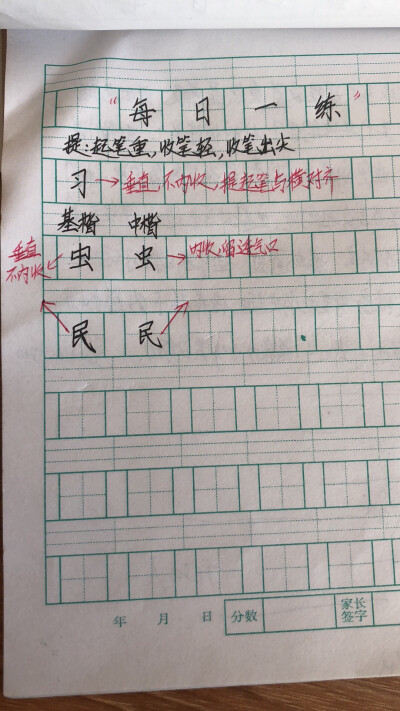 “每日一练”
提:起笔重,收笔轻,收笔出尖
习→垂直,不内收,提起笔与横对齐
基楷 中楷
垂直 不内收←虫 虫→内收,留透气口
民 民
年 月 日 分数 家长签字